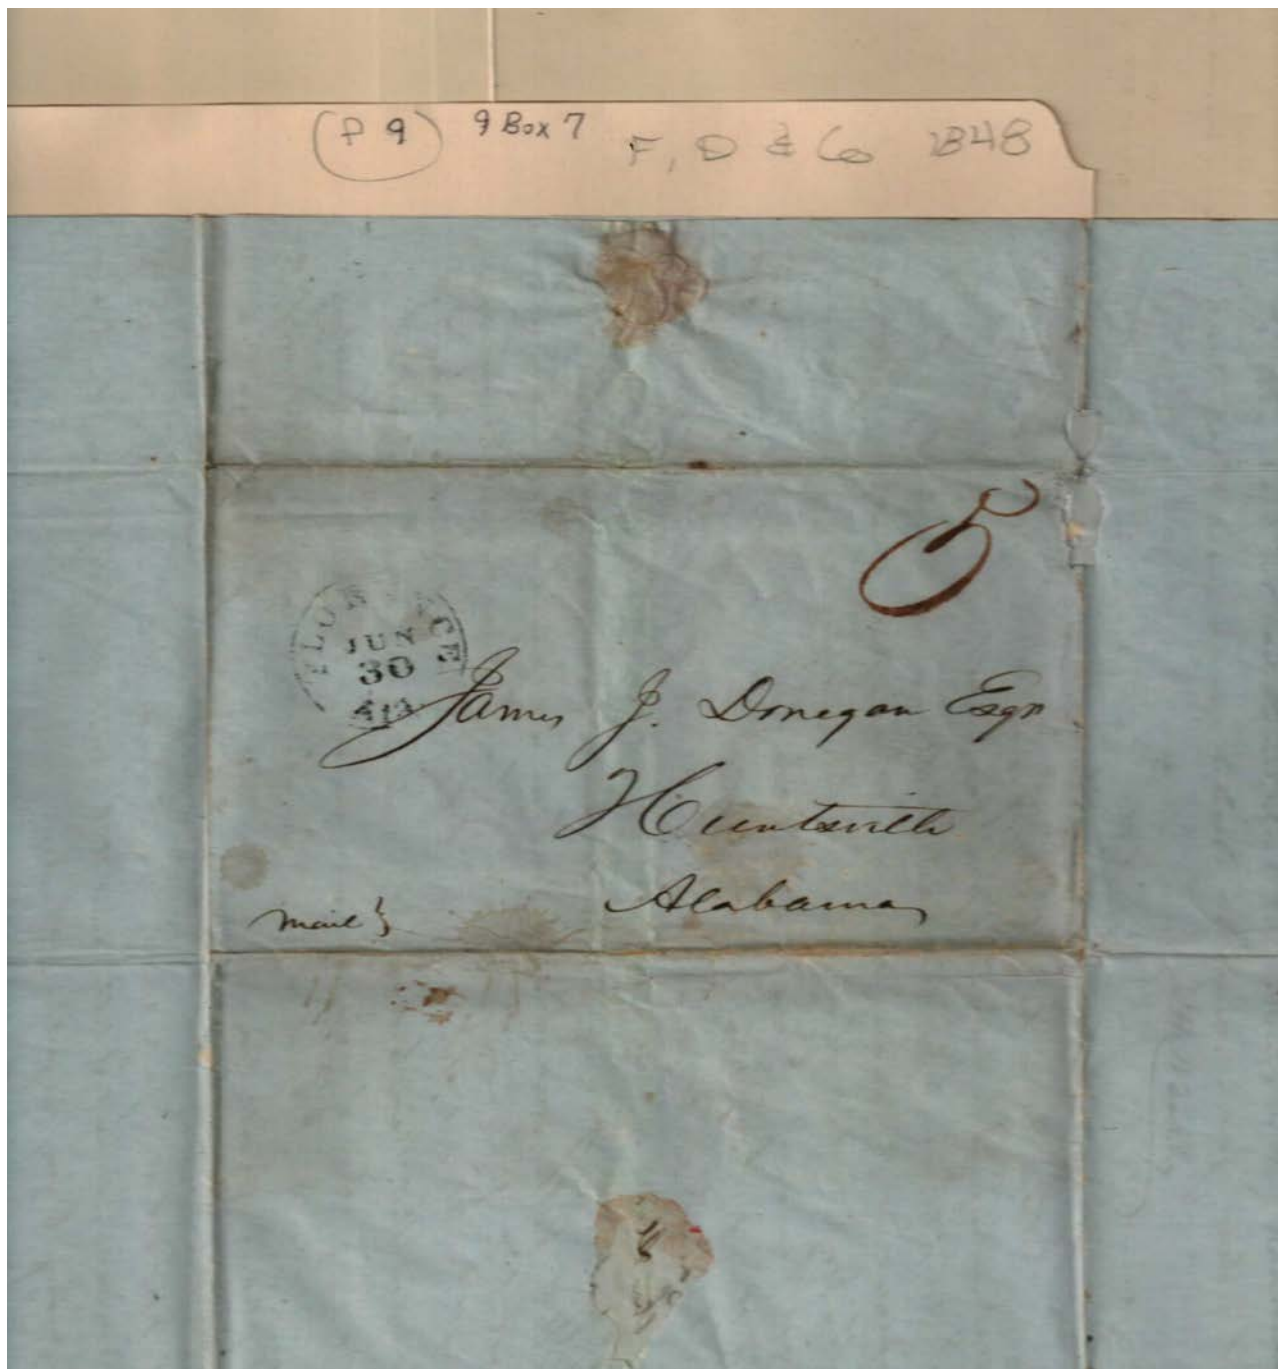 (P 9) 9 Box 7 F, D & Co 1848
5
FLORENCE
JUN
30
James J. Donegan Esqr
Huntsville
Alabama
Mail }